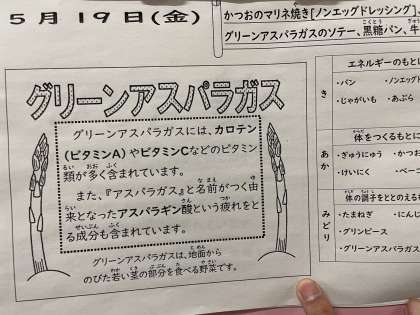 5月19日(金)
かつおのマリネ焼き[ノンエッグドレッシング]、
グリーンアスパラガスのソテー、黒糖パン、牛
グリーンアスパラガス
グリーンアスパラガスには、カロテン
(ビタミンA)やビタミンCなどのビタミン
類が多く含まれています。
また、『アスパラガス』と名前がつく由
来となったアスパラギン酸という疲れをと
る成分も含まれています。
グリーンアスパラガスは、地面から
のびた若い茎の部分を食べる野菜です。
エネルギーのもとに
き
・パン ・ノンエッグ
・じゃがいも ・あぶら
体をつくるもとに
あか
・ぎゅうにゅう ・かつお
・けいにく ・ベーコ
体の調子をととのえるも
みどり
・たまねぎ ・にんじ
・グリンピース
・グリーンアスパラガス